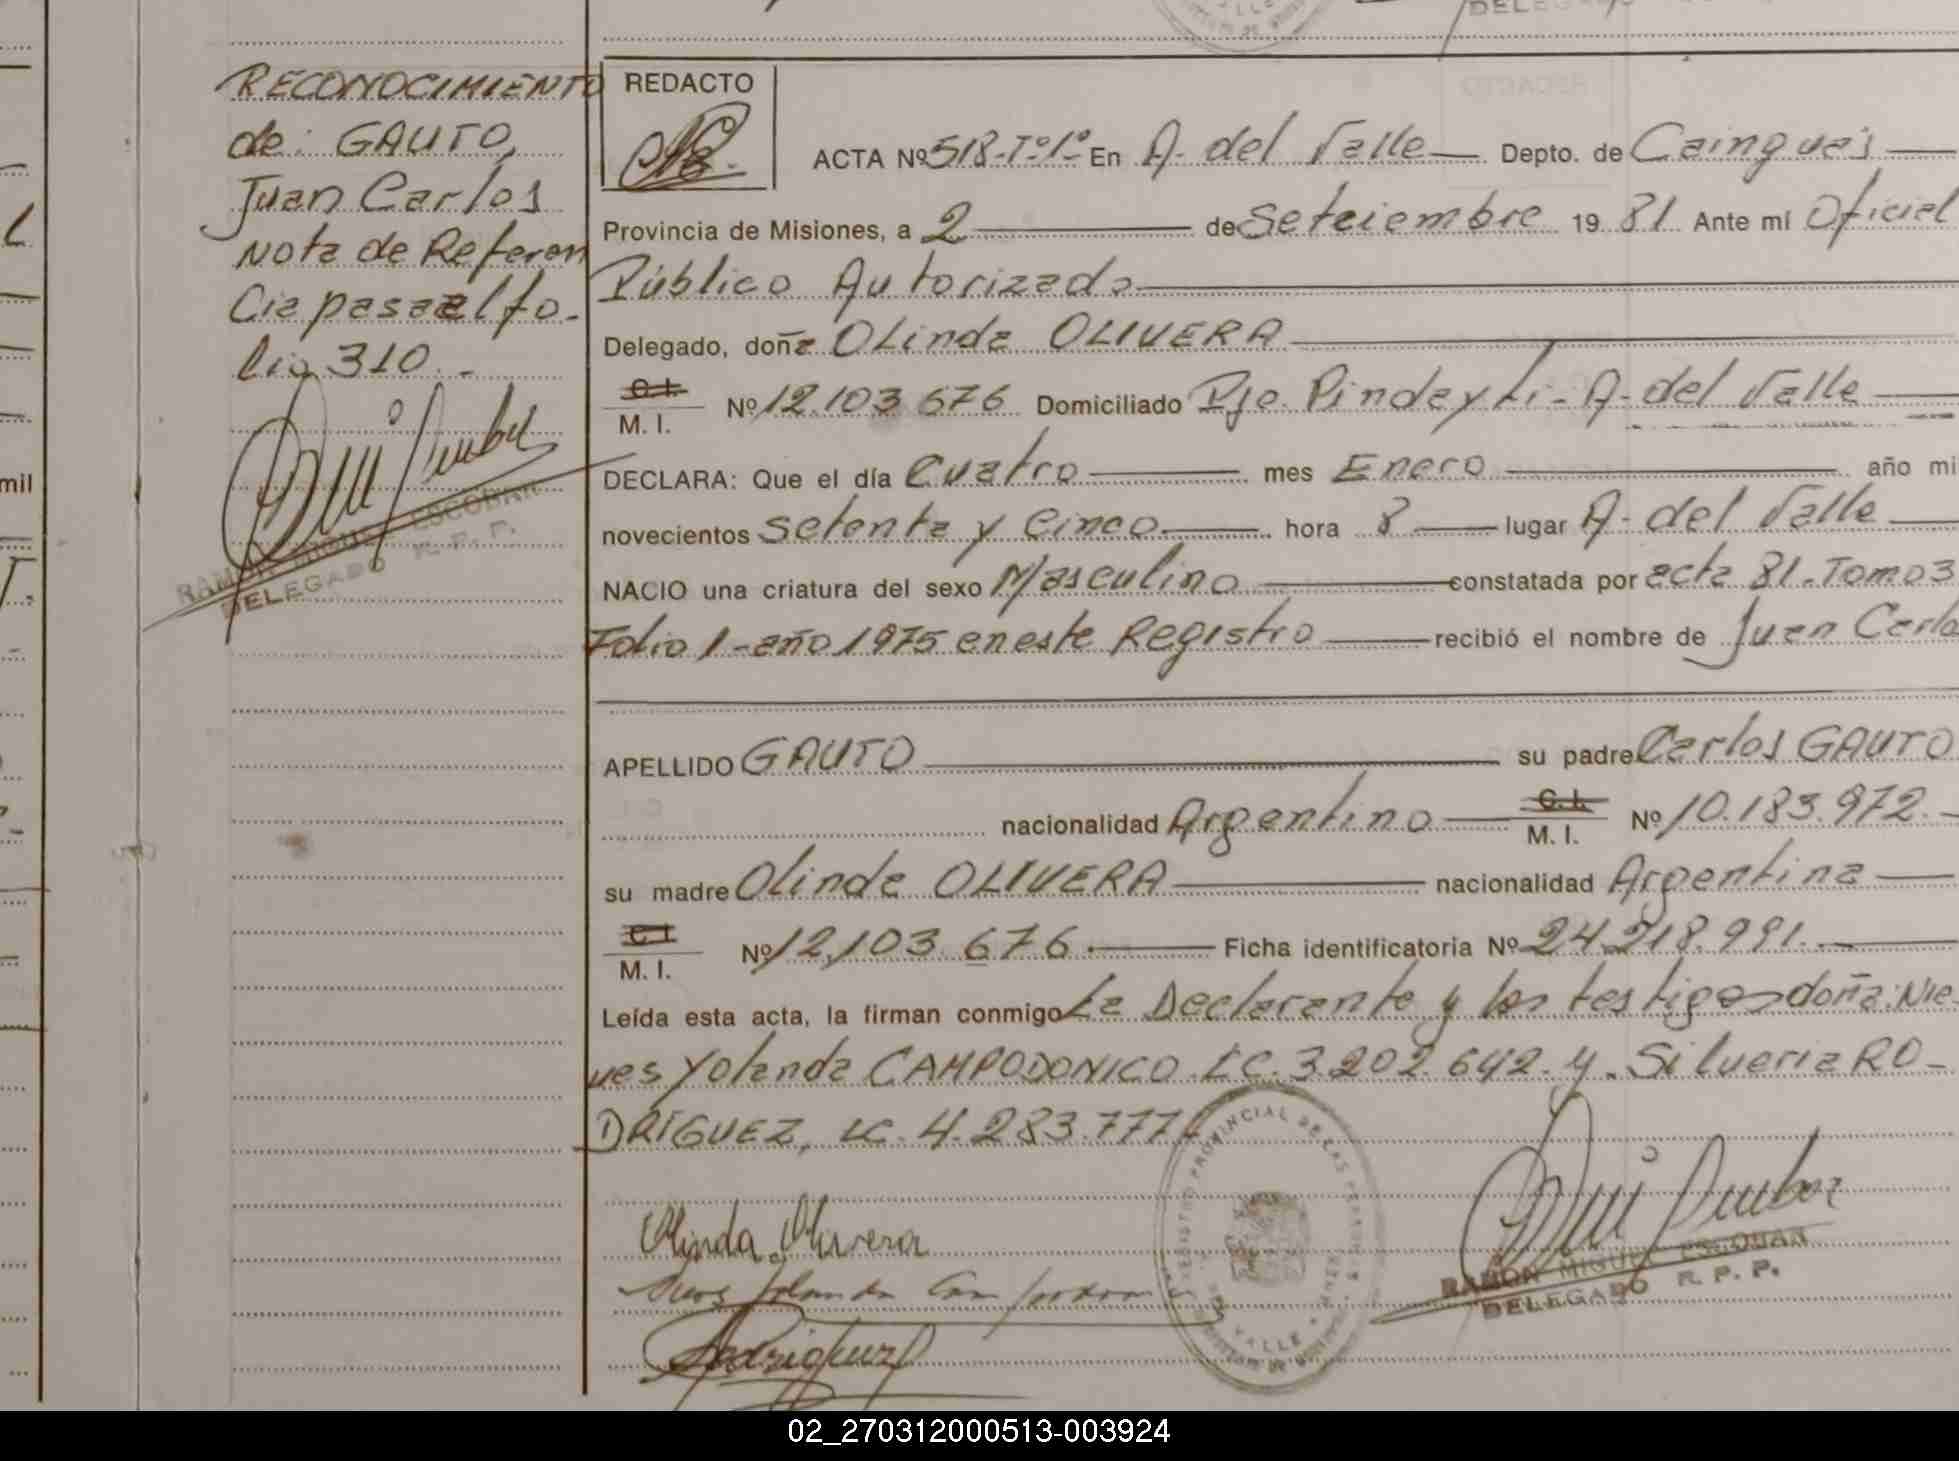 RECONOCIMIENTO
de: GAUTO,
Juan Carlos
Nota de Referen
cia pasa al fo-
lio 310.-
RAMON MIGUEL ESCOBAR
DELEGADO R. P. P.
REDACTO
ACTA Nº 518-Tº1º- En A. del Valle Depto. de Cainguás
Provincia de Misiones, a 2 de Seteiembre 19 81. Ante mí Oficial
Público Autorizado
Delegado, doña Olinda OLIVERA
C.I.
M. I. Nº 12.103.676 Domiciliado Pje. Pindayti- A. del Valle
DECLARA: Que el día Cuatro mes Enero año mi
novecientos Setenta y Cinco hora 8 lugar A. del Valle
NACIO una criatura del sexo Masculino constatada por acta 81. Tomo 3
Folio 1-año 1975 en este Registro recibió el nombre de Juan Carlo
APELLIDO GAUTO su padre Carlos GAUTO
nacionalidad Argentino C.I. M. I. Nº 10.183.972.-
su madre Olinda OLIVERA nacionalidad Argentina
C.I.
M. I. Nº 12.103.676.- Ficha identificatoria Nº 24.218.991.-
Leída esta acta, la firman conmigo La Declarante y los testigos doña: Nie-
ves Yolanda CAMPODONICO LC. 3.202.642. y. Silveria RO-
DRIGUEZ, LC. 4.283.777
Olinda Olivera
Rodriguez
REGISTRO PROVINCIAL DE LAS PERSONAS
VALLE
RAMON MIGUEL ESCOBAR
DELEGADO R. P. P.
mil
02_270312000513-003924